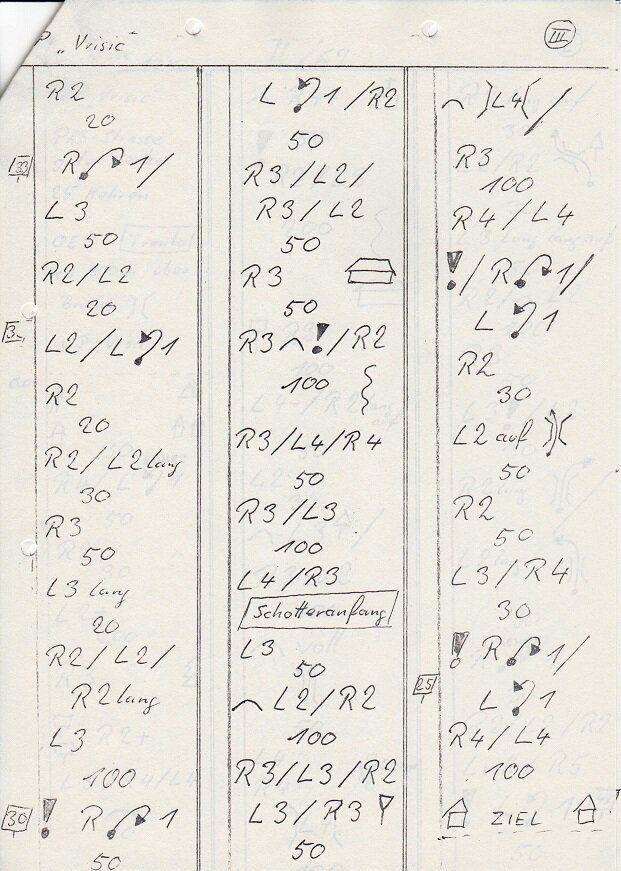 P „Vrisic“ III
R2
20
33 R 1/
L3
50
R2/L2
20
L2/L 1
R2
20
R2/L2 lang
30
R3
50
L3 lang
20
R2/L2/
R2 lang
L3
100
30 ! R 1
50
L 1/R2
50
R3/L2/
R3/L2
50
R3
50
R3 ! /R2
100
R3/L4/R4
50
R3/L3
100
L4/R3
Schotteranfang
L3
50
L2/R2
100
R3/L3/R2
L3/R3
50
)L4( /
R3
100
R4/L4
!/ R 1/
L 1
R2
30
L2 auf )(
50
R2
50
L3/R4
30
! R 1/
25 L 1
R4/L4
100
ZIEL